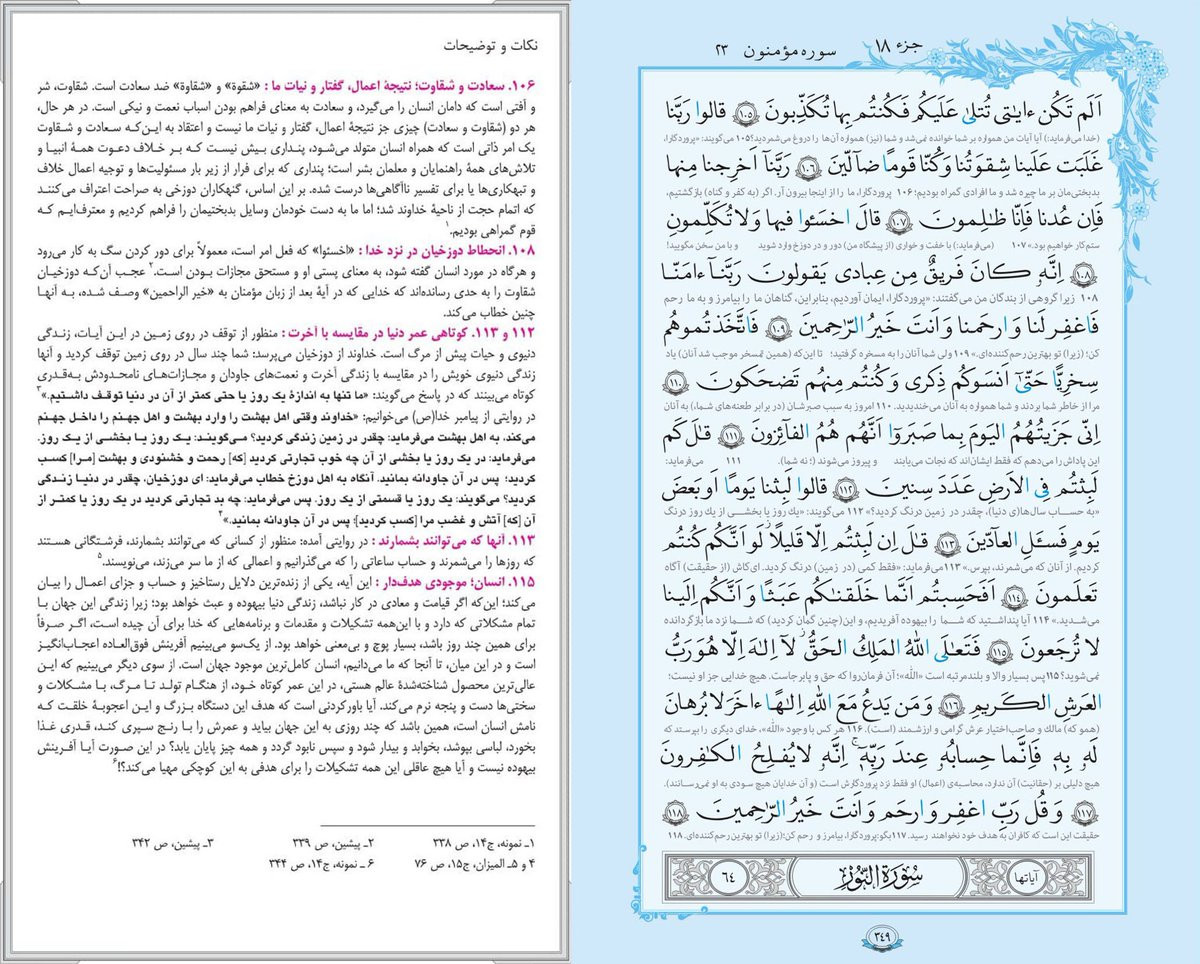 جزء ۱۸
سوره مؤمنون ۲۳
اَلَم تَكُن ءاياتى تُتلىٰ عَلَيكُم فَكُنتُم بِها تُكَذِّبونَ ١٠٥ قالوا رَبَّنا
(خدا می‌فرماید:) آیا آیات من همواره بر شما خوانده نمی‌شد و شما (نیز) همواره آن‌ها را دروغ می‌شمردید؟ ۱۰۵ می‌گویند: «پروردگارا،
غَلَبَت عَلَينا شِقوَتُنا وَ كُنّا قَومًا ضالّينَ ١٠٦ رَبَّنا اَخرِجنا مِنها
بدبختی‌مان بر ما چیره شد و ما افرادی گمراه بودیم؛ ۱۰۶ پروردگارا، ما را از اینجا بیرون آر. اگر (به کفر و گناه) بازگشتیم،
فَاِن عُدنا فَاِنّا ظالِمونَ ١٠٧ قالَ اخسَئوا فيها وَ لا تُكَلِّمونِ
ستم‌کار خواهیم بود.» ۱۰۷ (می‌فرماید:) با خفت و خواری (از پیشگاه من) دور و در دوزخ وارد شوید و با من سخن مگویید!
١٠٨ اِنَّهُ كانَ فَريقٌ مِن عِبادى يَقولونَ رَبَّنا ءامَنّا
۱۰۸ زیرا گروهی از بندگان من می‌گفتند: «پروردگارا، ایمان آوردیم، بنابراین، گناهان ما را بیامرز و به ما رحم
فَاغفِر لَنا وَ ارحَمنا وَ اَنتَ خَيرُ الرّاحِمينَ ١٠٩ فَاتَّخَذتُموهُم
کن؛ (زیرا) تو بهترین رحم‌کننده‌ای.» ۱۰۹ ولی شما آنان را به مسخره گرفتید؛ تا این‌که (همین تمسخر موجب شد آنان) یاد
سِخرِيًّا حَتّىٰ اَنسَوكُم ذِكرى وَ كُنتُم مِنهُم تَضحَكونَ ١١٠
مرا از خاطر شما بردند و شما همواره به آنان می‌خندیدید. ۱۱۰ امروز به سبب صبرشان (در برابر طعنه‌های شما)، به آنان
اِنّى جَزَيتُهُمُ اليَومَ بِما صَبَروا اَنَّهُم هُمُ الفائِزونَ ١١١ قالَ كَم
این پاداش را می‌دهم که فقط ایشان‌اند که نجات می‌یابند و پیروز می‌شوند (؛ نه شما). ۱۱۱ می‌فرماید:
لَبِثتُم فِى الاَرضِ عَدَدَ سِنينَ ١١٢ قالوا لَبِثنا يَومًا اَو بَعضَ
«به حساب سال‌ها(ی دنیا)، چقدر در زمین درنگ کردید؟» ۱۱۲ می‌گویند: «یک روز یا بخشی از یک روز درنگ
يَومٍ فَسـَٔلِ العادّينَ ١١٣ قالَ اِن لَبِثتُم اِلّا قَليلًا لَو اَنَّكُم كُنتُم
کردیم. از آنان که می‌شمرند، بپرس.» ۱۱۳ می‌فرماید: «فقط کمی (در زمین) درنگ کردید. ای‌کاش (از حقیقت) آگاه
تَعلَمونَ ١١٤ اَفَحَسِبتُم اَنَّما خَلَقناكُم عَبَثًا وَ اَنَّكُم اِلَينا
می‌شدید.» ۱۱۴ آیا پنداشتید که شما را بیهوده آفریدیم، و این(چنین گمان کردید) که شما نزد ما بازگردانده
لا تُرجَعونَ ١١٥ فَتَعالَى اللهُ المَلِكُ الحَقُّ لا اِلٰهَ اِلّا هُوَ رَبُّ
نمی‌شوید؟ ۱۱۵ پس بسیار والا و بلندمرتبه است «الله»؛ آن فرمان‌روا که حق و پابرجاست. هیچ خدایی جز او نیست؛
العَرشِ الكَريمِ ١١٦ وَ مَن يَدعُ مَعَ اللهِ اِلٰهًا ءاخَرَ لا بُرهانَ
(همو که) مالک و صاحب‌اختیار عرش گرامی و ارزشمند (است). ۱۱۶ هر کس با وجود «الله»، خدای دیگری را بپرستد که
لَهُ بِه فَاِنَّما حِسابُهُ عِندَ رَبِّه اِنَّهُ لا يُفلِحُ الكافِرونَ
هیچ دلیلی بر (حقانیت) آن ندارد، محاسبه‌ی (اعمال) او فقط نزد پروردگارش است (و آن خدایان هیچ سودی به او نمی‌رسانند).
١١٧ وَ قُل رَبِّ اغفِر وَ ارحَم وَ اَنتَ خَيرُ الرّاحِمينَ ١١٨
حقیقت این است که کافران به هدف خود نخواهند رسید. ۱۱۷ بگو: پروردگارا، بیامرز و رحم کن؛ (زیرا) تو بهترین رحم‌کننده‌ای. ۱۱۸
آیاتها سُورَةُ النُّورِ ٦٤
۳۴۹
نکات و توضیحات
۱۰۶. سعادت و شقاوت؛ نتیجهٔ اعمال، گفتار و نیات ما : «شقوة» و «شقاوة» ضد سعادت است. شقاوت، شر
و آفتی است که دامان انسان را می‌گیرد، و سعادت به معنای فراهم بودن اسباب نعمت و نیکی است. در هر حال،
هر دو (شقاوت و سعادت) چیزی جز نتیجهٔ اعمال، گفتار و نیات ما نیست و اعتقاد به این‌که سعادت و شقاوت
یک امر ذاتی است که همراه انسان متولد می‌شود، پنداری بیش نیست که بر خلاف دعوت همهٔ انبیا و
تلاش‌های همهٔ راهنمایان و معلمان بشر است؛ پنداری که برای فرار از زیر بار مسئولیت‌ها و توجیه اعمال خلاف
و تبهکاری‌ها یا برای تفسیر ناآگاهی‌ها درست شده. بر این اساس، گنهکاران دوزخی به صراحت اعتراف می‌کنند
که اتمام حجت از ناحیهٔ خداوند شد؛ اما ما به دست خودمان وسایل بدبختیمان را فراهم کردیم و معترفیم که
قوم گمراهی بودیم.۱
۱۰۸. انحطاط دوزخیان در نزد خدا : «اخسئوا» که فعل امر است، معمولاً برای دور کردن سگ به کار می‌رود
و هرگاه در مورد انسان گفته شود، به معنای پستی او و مستحق مجازات بودن است.۲ عجب آن‌که دوزخیان
شقاوت را به حدی رسانده‌اند که خدایی که در آیهٔ بعد از زبان مؤمنان به «خیر الراحمین» وصف شده، به آنها
چنین خطاب می‌کند.
۱۱۲ و ۱۱۳. کوتاهی عمر دنیا در مقایسه با آخرت : منظور از توقف در روی زمین در این آیات، زندگی
دنیوی و حیات پیش از مرگ است. خداوند از دوزخیان می‌پرسد: شما چند سال در روی زمین توقف کردید و آنها
زندگی دنیوی خویش را در مقایسه با زندگی آخرت و نعمت‌های جاودان و مجازات‌های نامحدودش به‌قدری
کوتاه می‌بینند که در پاسخ می‌گویند: «ما تنها به اندازهٔ یک روز یا حتی کمتر از آن در دنیا توقف داشتیم.»۳
در روایتی از پیامبر خدا(ص) می‌خوانیم: «خداوند وقتی اهل بهشت را وارد بهشت و اهل جهنم را داخل جهنم
می‌کند، به اهل بهشت می‌فرماید: چقدر در زمین زندگی کردید؟ می‌گویند: یک روز یا بخشی از یک روز.
می‌فرماید: در یک روز یا بخشی از آن چه خوب تجارتی کردید [که] رحمت و خشنودی و بهشت [مرا] کسب
کردید؛ پس در آن جاودانه بمانید. آنگاه به اهل دوزخ خطاب می‌فرماید: ای دوزخیان، چقدر در دنیا زندگی
کردید؟ می‌گویند: یک روز یا قسمتی از یک روز. پس می‌فرماید: چه بد تجارتی کردید در یک روز یا کمتر از
آن [که] آتش و غضب مرا [کسب کردید]؛ پس در آن جاودانه بمانید.»۴
۱۱۳. آنها که می‌توانند بشمارند : در روایتی آمده: منظور از کسانی که می‌توانند بشمارند، فرشتگانی هستند
که روزها را می‌شمرند و حساب ساعاتی را که می‌گذرانیم و اعمالی که از ما سر می‌زند، می‌نویسند.۵
۱۱۵. انسان؛ موجودی هدف‌دار : این آیه، یکی از زنده‌ترین دلایل رستاخیز و حساب و جزای اعمال را بیان
می‌کند؛ این‌که اگر قیامت و معادی در کار نباشد، زندگی دنیا بیهوده و عبث خواهد بود؛ زیرا زندگی این جهان با
تمام مشکلاتی که دارد و با این‌همه تشکیلات و مقدمات و برنامه‌هایی که خدا برای آن چیده است، اگر صرفاً
برای همین چند روز باشد، بسیار پوچ و بی‌معنی خواهد بود. از یک‌سو می‌بینیم آفرینش فوق‌العاده اعجاب‌انگیز
است و در این میان، تا آنجا که ما می‌دانیم، انسان کامل‌ترین موجود جهان است. از سوی دیگر می‌بینیم که این
عالی‌ترین محصول شناخته‌شدهٔ عالم هستی، در این عمر کوتاه خود، از هنگام تولد تا مرگ، با مشکلات و
سختی‌ها دست و پنجه نرم می‌کند. آیا باورکردنی است که هدف این دستگاه بزرگ و این اعجوبهٔ خلقت که
نامش انسان است، همین باشد که چند روزی به این جهان بیاید و عمرش را با رنج سپری کند، قدری غذا
بخورد، لباسی بپوشد، بخوابد و بیدار شود و سپس نابود گردد و همه چیز پایان یابد؟ در این صورت آیا آفرینش
بیهوده نیست و آیا هیچ عاقلی این همه تشکیلات را برای هدفی به این کوچکی مهیا می‌کند؟!۶
۱ـ نمونه، ج۱۴، ص ۳۳۸ ۲ـ پیشین، ص ۳۳۹ ۳ـ پیشین، ص ۳۴۲
۴ و ۵ـ المیزان، ج۱۵، ص ۷۶ ۶ـ نمونه، ج۱۴، ص ۳۴۴